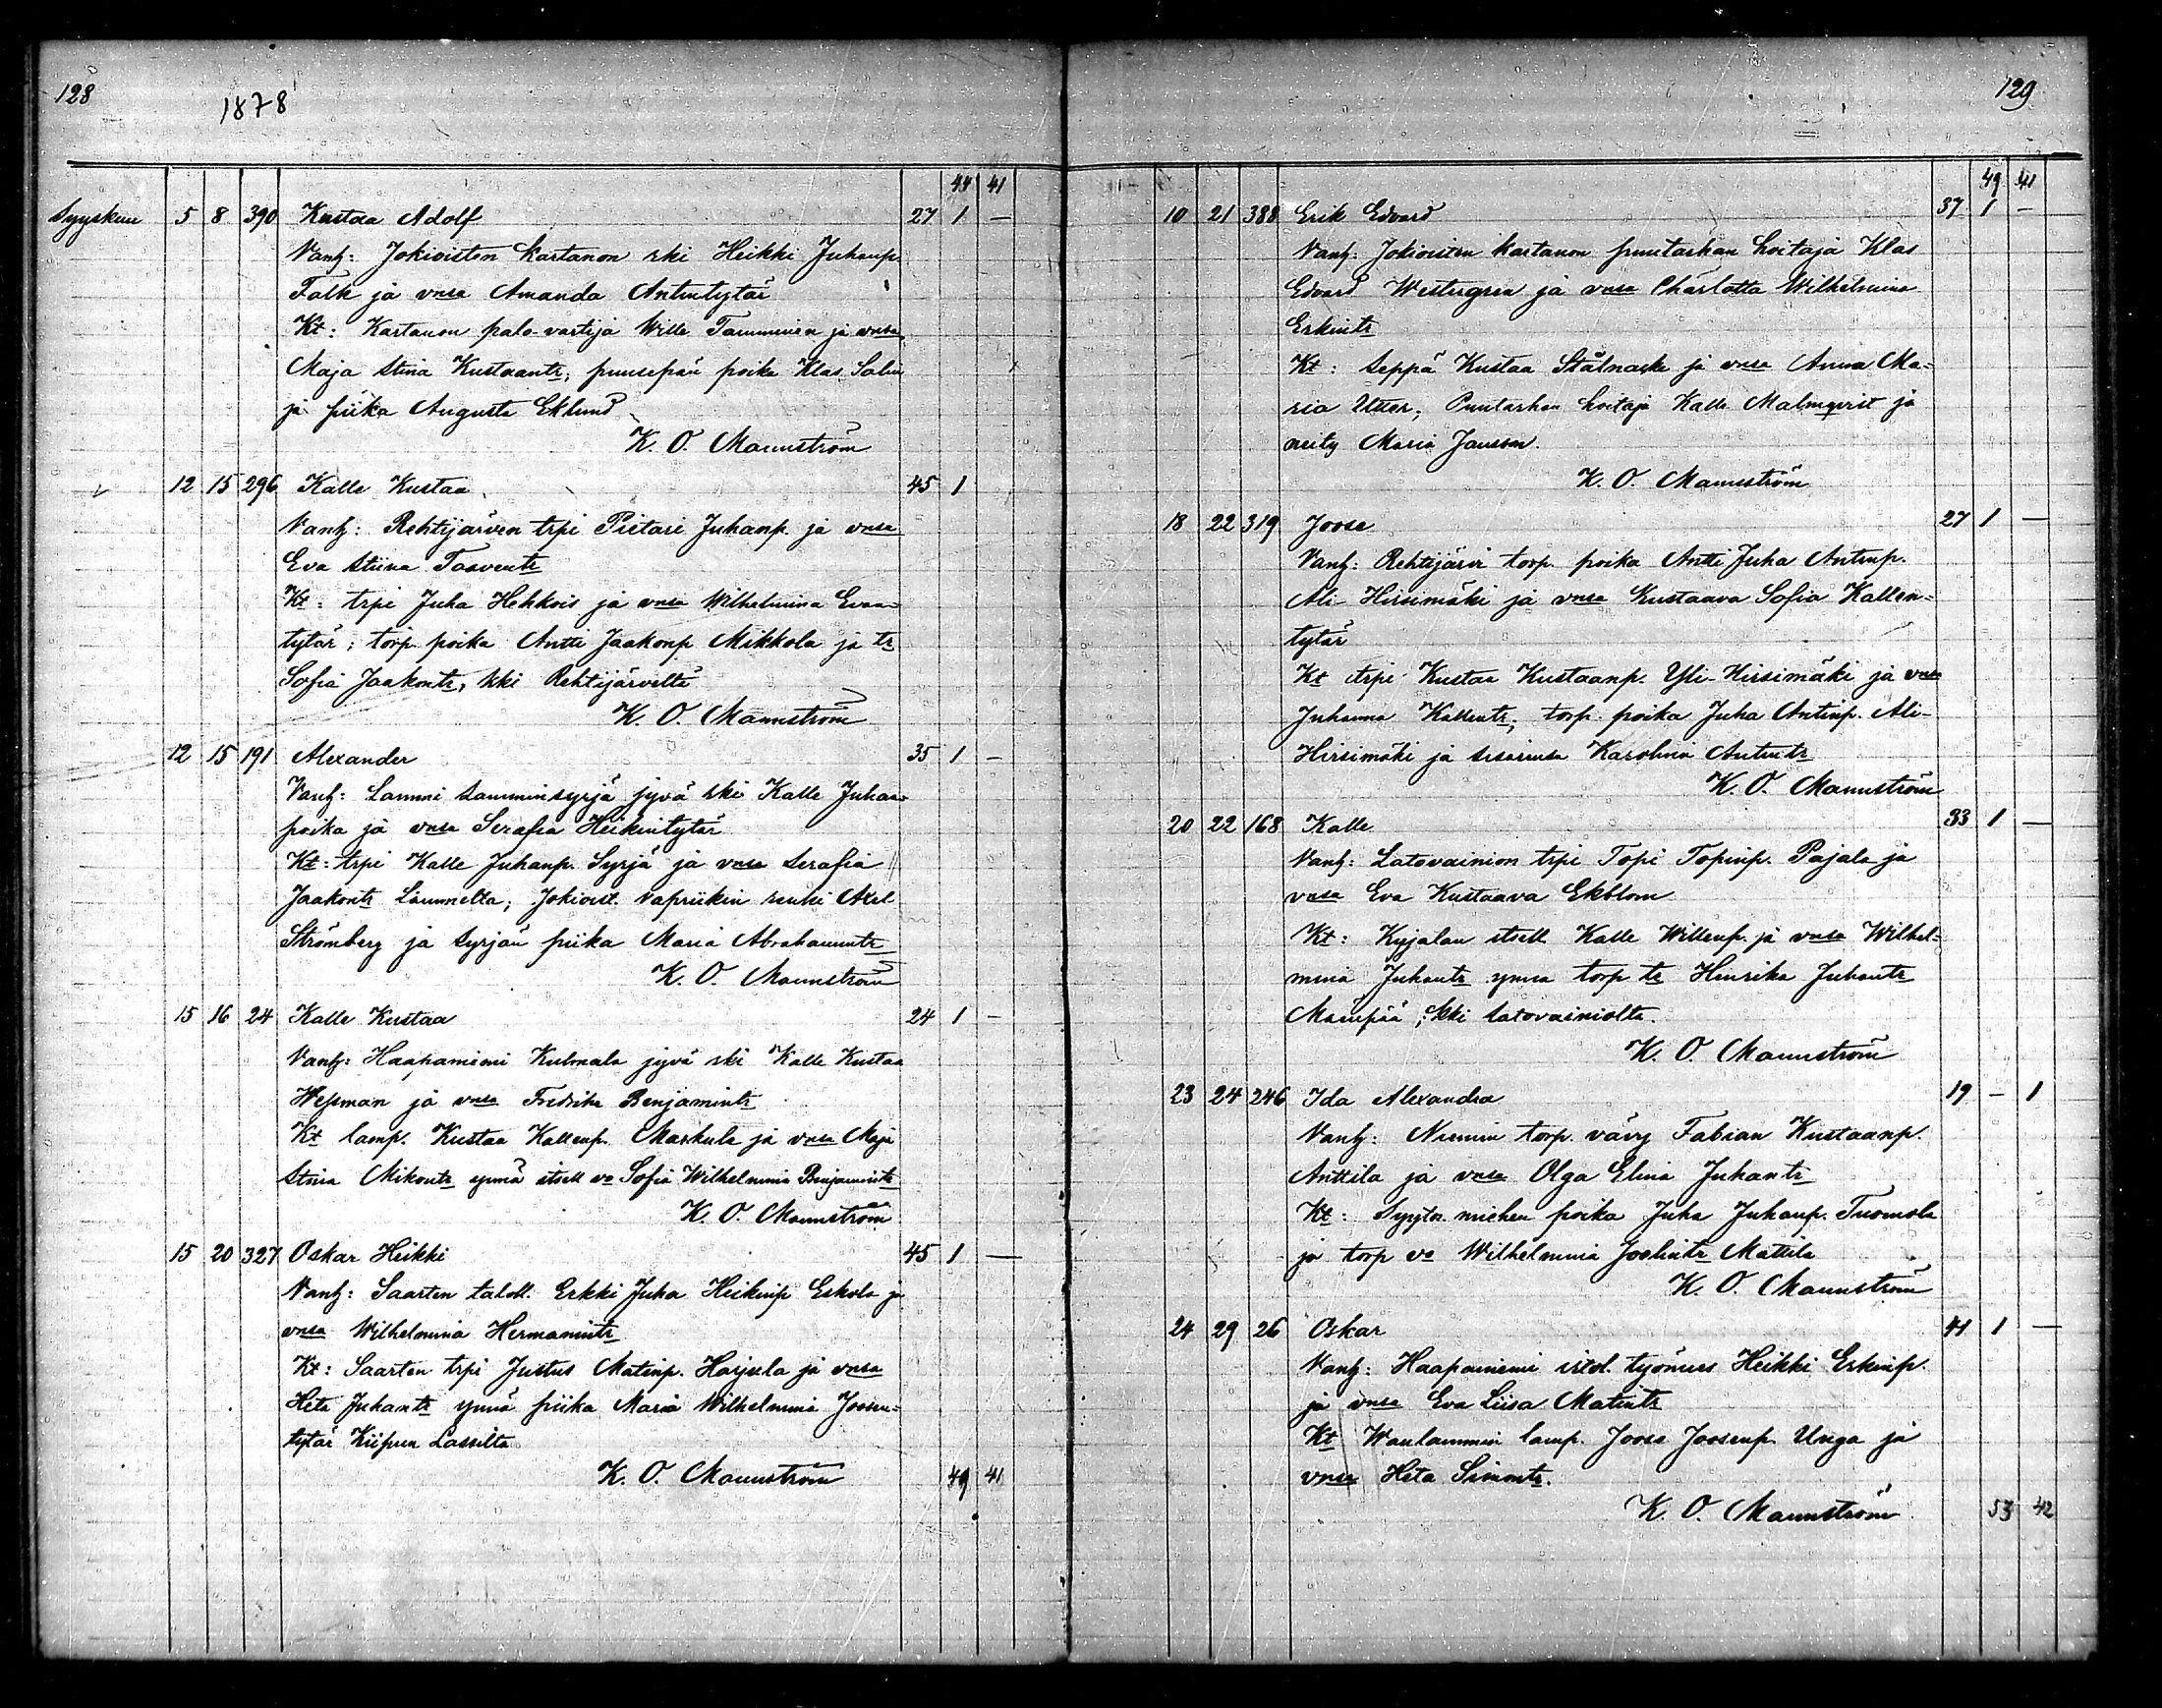 128
1878
44 41
Syyskuu 5 8 390 Kustaa Adolf 27 1 —
Vanh: Jokioisten Kartanon ski Heikki Juhanp.
Falk ja vnsa Amanda Antintytär
Kt: Kartanon palo-vartija Wille Tamminen ja vnsa
Maja Stina Kustaantr; puusepän poika Klas Salin
ja piika Augusta Eklund
K. O. Mannström
12 15 296 Kalle Kustaa 45 1
Vanh: Rehtijärven trpi Pietari Juhanp. ja vnsa
Eva Stiina Taaventr
Kt: trpi Juha Hehkois ja vnsa Wilhelmina Evan-
tytär; torp. poika Antti Jaakonp Mikkola ja tr
Sofia Jaakontr, kki Rehtijärveltä
K. O. Mannström
12 15 191 Alexander 35 1 —
Vanh: Lammi Lamminsyrjä jyvä ski Kalle Juhan-
poika ja vnsa Serafia Heikintytär
Kt: trpi Kalle Juhanp. Syrjä ja vnsa Serafia
Jaakontr Lammelta; Jokioist. Vapriikin renki Axel
Strömberg ja Syrjän piika Maria Abrahamintr
K. O. Mannström
15 16 24 Kalle Kustaa 24 1 —
Vanh: Haapaniemi Kulmala jyvä ski Kalle Kustaa
Wessman ja vnsa Fredrika Benjamintr
Kt lamp. Kustaa Kallenp. Markula ja vnsa Maja
Stina Mikontr ynnä itsell vo Sofia Wilhelmina Benjamintr
K. O. Mannström
15 20 327 Oskar Heikki 45 1 —
Vanh: Saarten taloll. Erkki Juha Heikinp Eskola ja
vnsa Wilhelmina Hermanintr
Kt: Saarten trpi Justus Matinp. Harjula ja vnsa
Heta Juhantr ynnä piika Maria Wilhelmina Joosen-
tytär Kiipun Lassilta
K. O. Mannström 49 41
129
49 41
10 21 388 Erik Edvard 37 1 —
Vanh: Jokioisten kartanon puutarhan hoitaja Klas
Edvard Westergren ja vnsa Charlotta Wilhelmina
Erkintr
Kt: Seppä Kustaa Stålnacke ja vnsa Anna Ma-
ria Utter; Puutarhan hoitaja Kalle Malmqvist ja
neity Maria Jansson.
K. O. Mannström
18 22 319 Joose 27 1 —
Vanh: Rehtijärvi torp. poika Antti Juha Antinp.
Ali-Hirsimäki ja vnsa Kustaava Sofia Kallen-
tytär
Kt trpi Kustaa Kustaanp. Yli-Hirsimäki ja vnsa
Juhanna Kallentr; torp. poika Juha Antinp. Ali-
Hirsimäki ja sisarensa Karolina Antintr
K. O. Mannström
20 22 168 Kalle 33 1 —
Vanh: Latovainion trpi Topi Topinp. Pajala ja
vnsa Eva Kustaava Ekblom
Kt: Kyjalan itsell Kalle Willenp. ja vnsa Wilhel-
mina Juhantr ynnä torp tr Henrika Juhantr
Mäenpää; kki Latovainiolta.
K. O. Mannström
23 24 246 Ida Alexandra 19 — 1
Vanh: Niemin torp. vävy Fabian Kustaanp.
Anttila ja vnsa Olga Elina Juhantr
Kt: Syytn. miehen poika Juha Juhanp. Tuomola
ja torp vo Wilhelmina Joelintr Mattila
K. O. Mannström
24 29 26 Oskar 41 1 —
Vanh: Haapaniemi irtol. työmies Heikki Erkinp.
ja vnsa Eva Liisa Matintr
Kt Waulammin lamp. Joose Joosenp. Unga ja
vnsa Heta Simontr.
K. O. Mannström 53 42